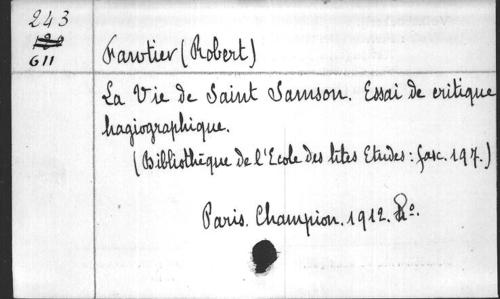 243
611
Fawtier (Robert)
La Vie de Saint Samson. Essai de critique
hagiographique.
(Bibliothèque de l'Ecole des htes Etudes: fasc. 197.)
Paris. Champion. 1912. 8º.